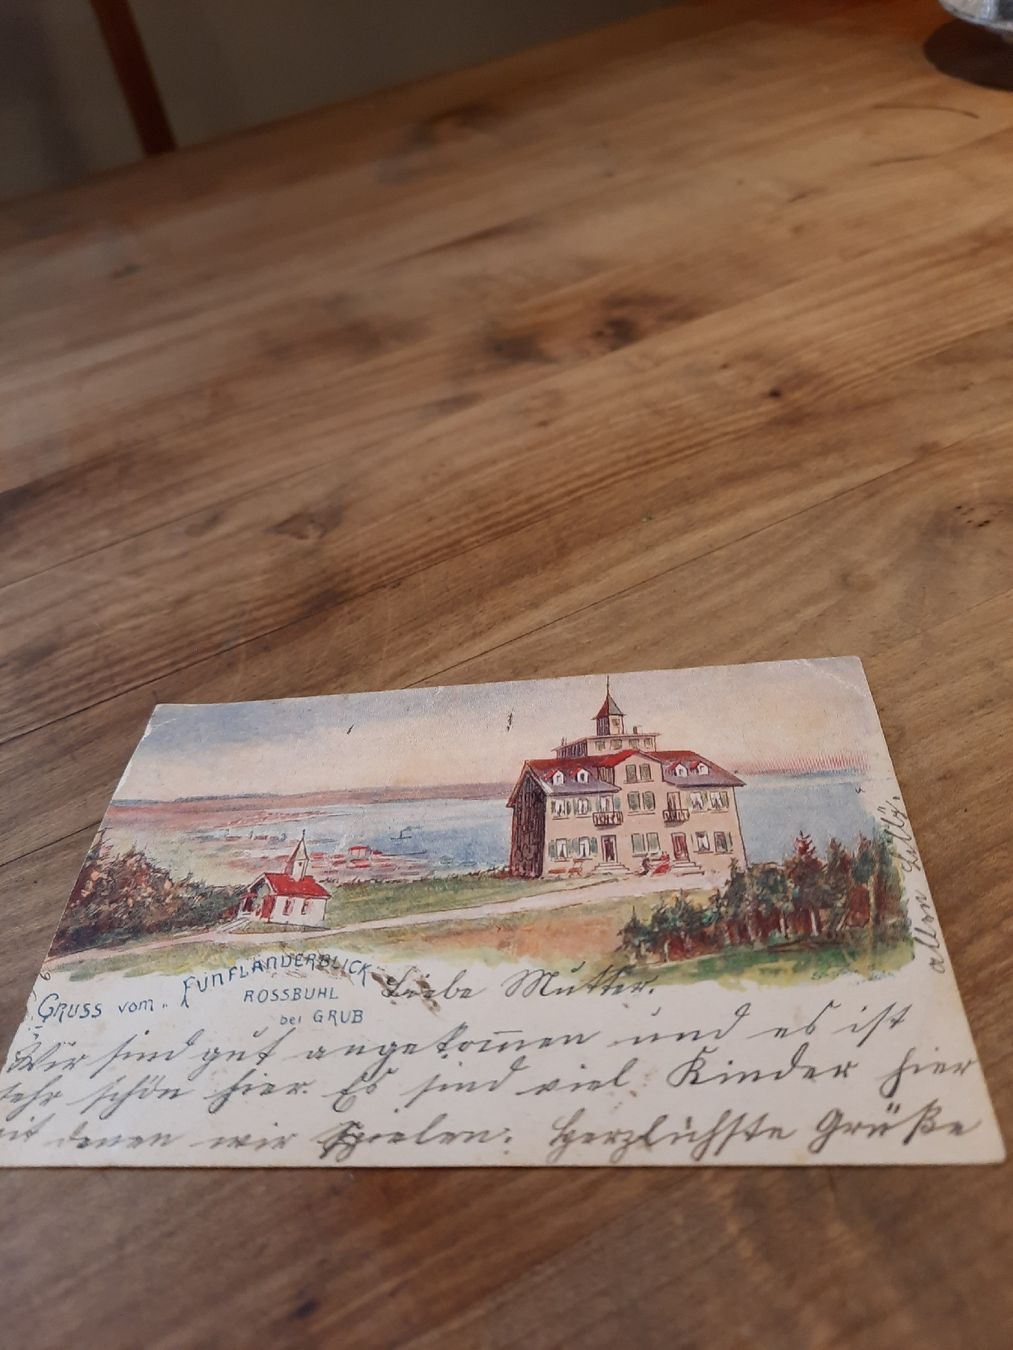 GRUSS VOM FÜNFLÄNDERBLICK
ROSSBÜHL
bei GRUB
Liebe Mutter.
Wir sind gut angekom̅en und es ist
sehr schön hier. Es sind viel Kinder hier
mit denen wir spielen. Herzlichste Grüße
allen